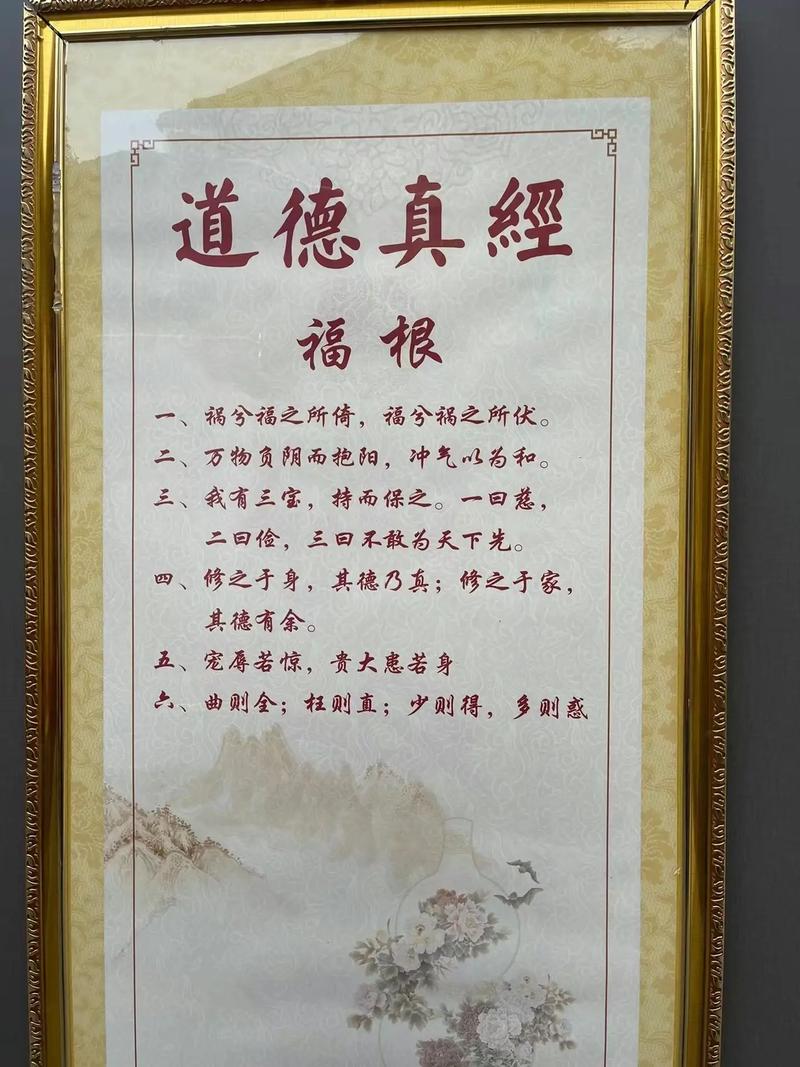 道德真經
福根
一、祸兮福之所倚，福兮祸之所伏。
二、万物负阴而抱阳，冲气以为和。
三、我有三宝，持而保之。一曰慈，
二曰俭，三曰不敢为天下先。
四、修之于身，其德乃真；修之于家，
其德有余。
五、宠辱若惊，贵大患若身
六、曲则全；枉则直；少则得，多则惑